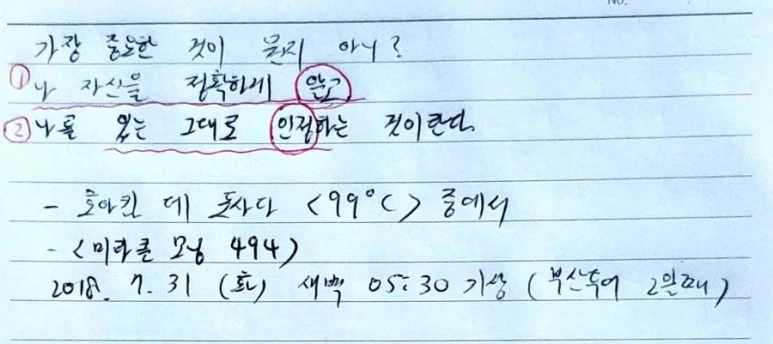 NO.
가장 중요한 것이 뭔지 아니?
① 나 자신을 정확하게 알고
② 나를 있는 그대로 인정하는 것이란다.
- 호아킨 데 포사다 <99℃> 중에서
- <미라클 모닝 494>
2018. 7. 31 (화) 새벽 05:30 기상 (부산투어 2일째)